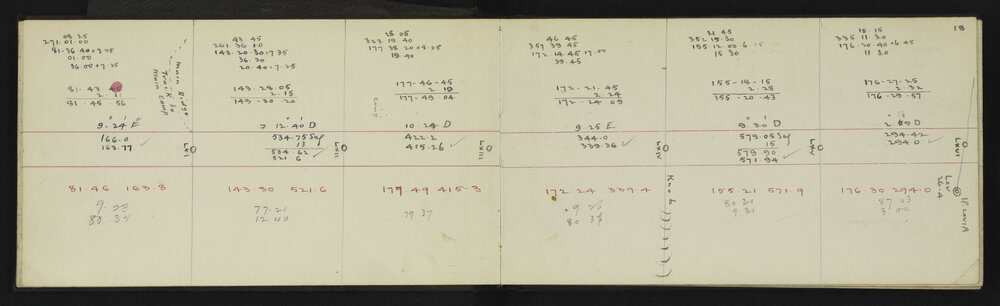 18
08 25
271.01.00
81.36.40+7.25
01.00
36.00+7.25
81.43.
2.11
81.45.56
9.24 E
166.0
163.77 ✓
LXI
Main Ridge
Track to
Main Camp
81.46 163.8
9.23
43 45
143.20.30+7.35
36.20
20.40+7.25
143.28.05
2.15
143-30.20
7 12.40 D
534.75 Sag
13
534 62 ✓
521 6
LXII
143.30 521.6
77.21
12 40
28 05
323.19.40
177 38 20+8.25
19.40
177-46-45
2 19
177-49 04
Camp
10-24 D
422.2
415.26 ✓
LXIII
177.49 415.3
79 37
46 45
357 39 45
172 14 45+7 00
39.45
172.21.45
2.24
172-24 09
9 25 E
344.0
339.36 ✓
LXIV
172 24 339.4
9 20
80 38
Knob
21 45
352 15.30
155.12.00+6.15
15 30
155-18-15
2.28
155-20.43
9 30 D
579.05 Sag
15
579.90
571 94 ✓
LXV
155 21 571.9
80.31
9 31
18.15
335 11 30
176.20 40+6.45
11 20
176-27-25
2 32
176-29-57
2.59 D
294.42
294.0 ✓
LXVI
Lev
26.4
176.30 294.0
87 03
3 00